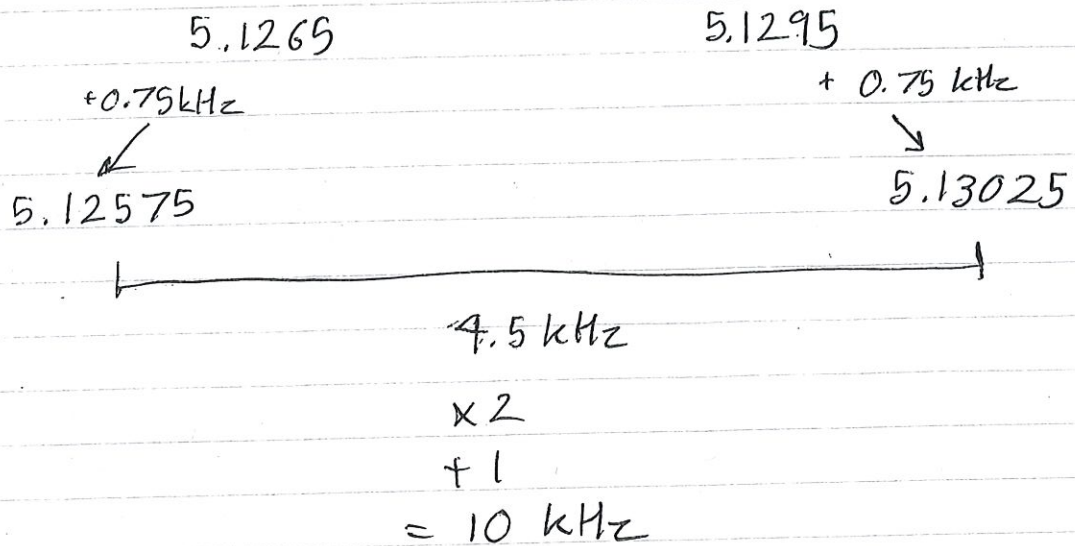 5.1265 5.1295
+0.75kHz + 0.75 kHz
5.12575 5.13025
4.5 kHz
x 2
+ 1
= 10 kHz